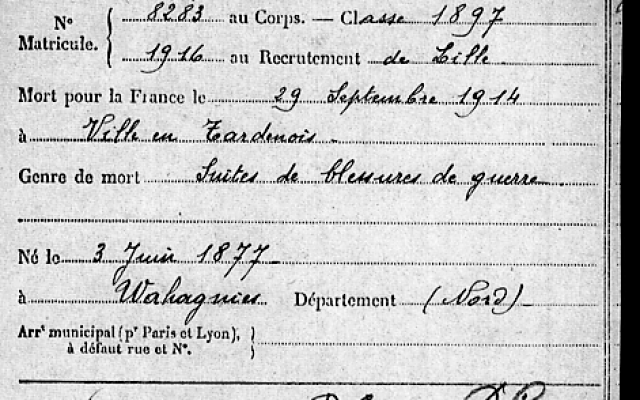 N° Matricule. { 8283 au Corps. — Classe 1897
1916 au Recrutement de Lille
Mort pour la France le 29 Septembre 1914
à Ville en Tardenois
Genre de mort Suites de blessures de guerre
Né le 3 Juin 1877
à Wahagnies Département (Nord)
Arrt municipal (pr Paris et Lyon),
à défaut rue et N°.